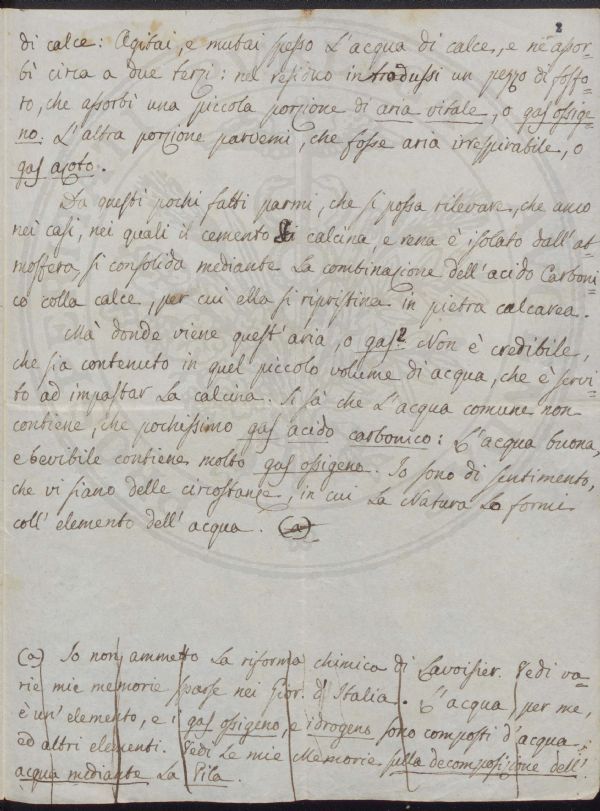 2
di calce: Agitai, e mutai spesso L'acqua di calce, e ne assor-
bì circa a due terzi: nel residuo intradussi un pezzo di fosfo-
ro, che assorbì una piccola porzione di aria vitale, o gas ossige-
no. L'altra porzione parvemi, che fosse aria irrespirabile, o
gas azoto.
Da questi pochi fatti parmi, che si possa rilevare, che anco
nei casi, nei quali il cemento di calcina, e rena è isolato dall'at-
mosfera, si consolida mediante La combinazione dell'acido Carboni-
co colla calce, per cui ella si ripristina in pietra calcarea.
Mà donde viene quest'aria, o gas? Non è credibile,
che sia contenuto in quel piccolo volume di acqua, che è servi-
to ad impastar La calcina. Si sà che L'acqua comune non
contiene, che pochissimo gas acido carbonico: L'acqua buona,
e bevibile contiene molto gas ossigeno. Io sono di sentimento,
che vi siano delle circostanze, in cui La Natura Lo formi
coll'elemento dell'acqua. (a)
(a) Io non ammetto La riforma chimica di Lavoisier. Vedi va-
rie mie memorie sparse nei Gior. d'Italia. L'acqua, per me,
è un'elemento, e i gas ossigeno, e idrogeno sono composti d'acqua,
ed altri elementi. Vedi Le mie Memorie sulla decomposizione dell'
acqua mediante La Pila.